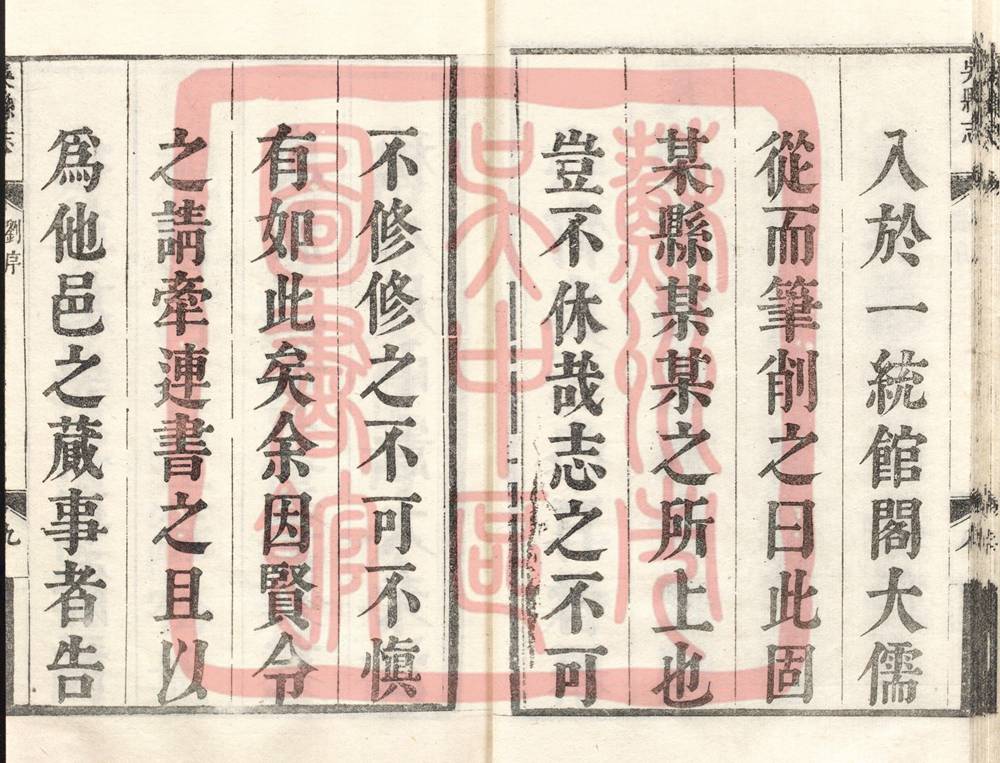 入於一統館閣大儒
從而筆削之曰此固
某縣某某之所上也
豈不休哉志之不可
不修修之不可不慎
有如此矣余因賢令
之請牽連書之且以
爲他邑之蕆事者告
吳縣志
劉序
九
吳縣志
圖書館